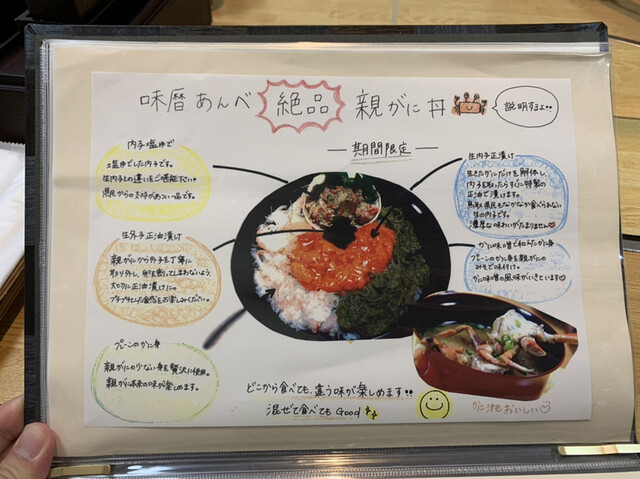 味暦あんべ 絶品 親がに丼
説明するよ
期間限定
内子塩ゆで
塩ゆでした内子です。
生内子との違いをご堪能下さい
県民からの支持があつい一品です。
生外子正油漬け
親がにから外子を丁寧に
取り外し、
大切に正油漬けに。
プチプチとした食感をお楽しみください。
プレーンのかに身
親がにの少ない身を贅沢に使用。
親がに本来の味が楽しめます。
生内子正油漬け
生きたかにだけを解体し、
内子を取ったらすぐに特製の
正油で漬けます。
鳥取県民もなかなか食べられない
生の内子です。
濃厚な味わいがたまりません♡
かに味噌で和えたかに身
プレーンのかに身を親がにの
みそで味付け。
かに味噌の風味がいきています♡
どこから食べても、違う味が楽しめます
混ぜて食べてもGood
かに汁もおいしい♡